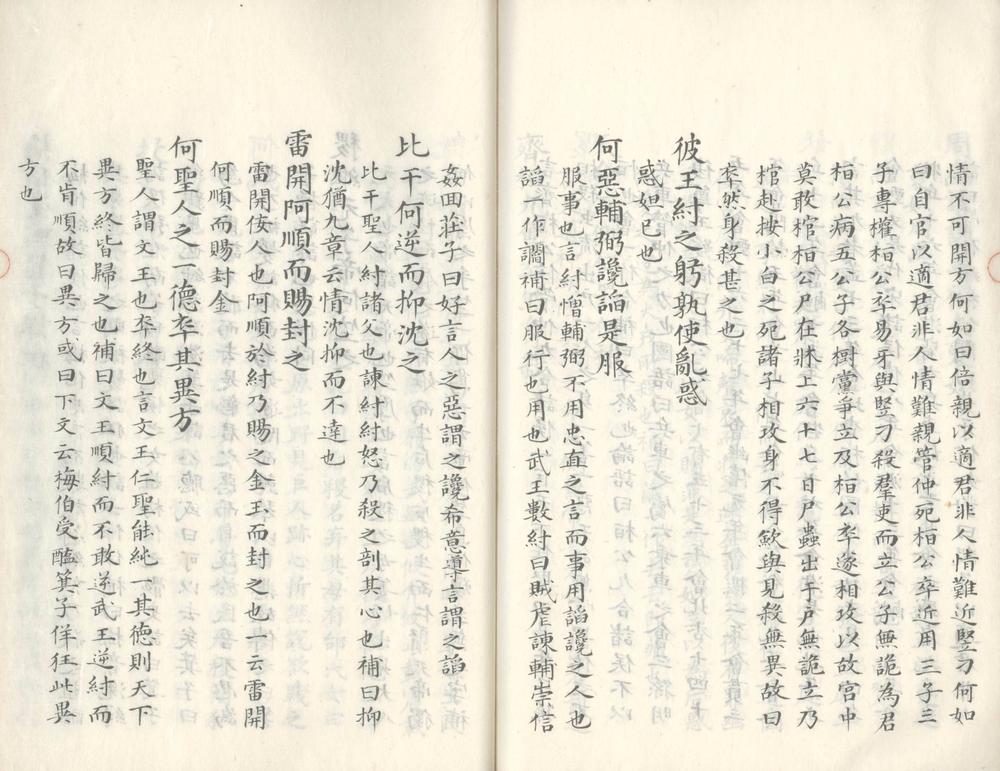 情不可開方何如曰倍親以適君非人情難近豎刁何如
曰自宫以適君非人情難親管仲死桓公卒近用三子三
子專權桓公卒易牙與豎刁殺羣吏而立公子無詭為君
桓公病五公子各樹黨爭立及桓公卒遂相攻以故宫中
莫敢棺桓公尸在牀上六十七日尸蟲出于戶無詭立乃
棺赴按小白之死諸子相攻身不得歛與見殺無異故曰
卒然身殺甚之也
彼王紂之躬孰使亂惑
惑妲已也
何惡輔弼讒謟是服
服事也言紂憎輔弼不用忠直之言而事用謟讒之人也
謟一作讇補曰服行也用也武王數紂曰賊虐諫輔崇信
姦回莊子曰好言人之惡謂之讒希意導言謂之謟
比干何逆而抑沈之
比干聖人紂諸父也諫紂紂怒乃殺之剖其心也補曰抑
沈猶九章云情沈抑而不達也
雷開阿順而賜封之
雷開佞人也阿順於紂乃賜之金玉而封之也一云雷開
何順而賜封金
何聖人之一德卒其異方
聖人謂文王也卒終也言文王仁聖能純一其德則天下
異方終皆歸之也補曰文王順紂而不敢逆武王逆紂而
不肯順故曰異方或曰下文云梅伯受醢箕子佯狂此異
方也